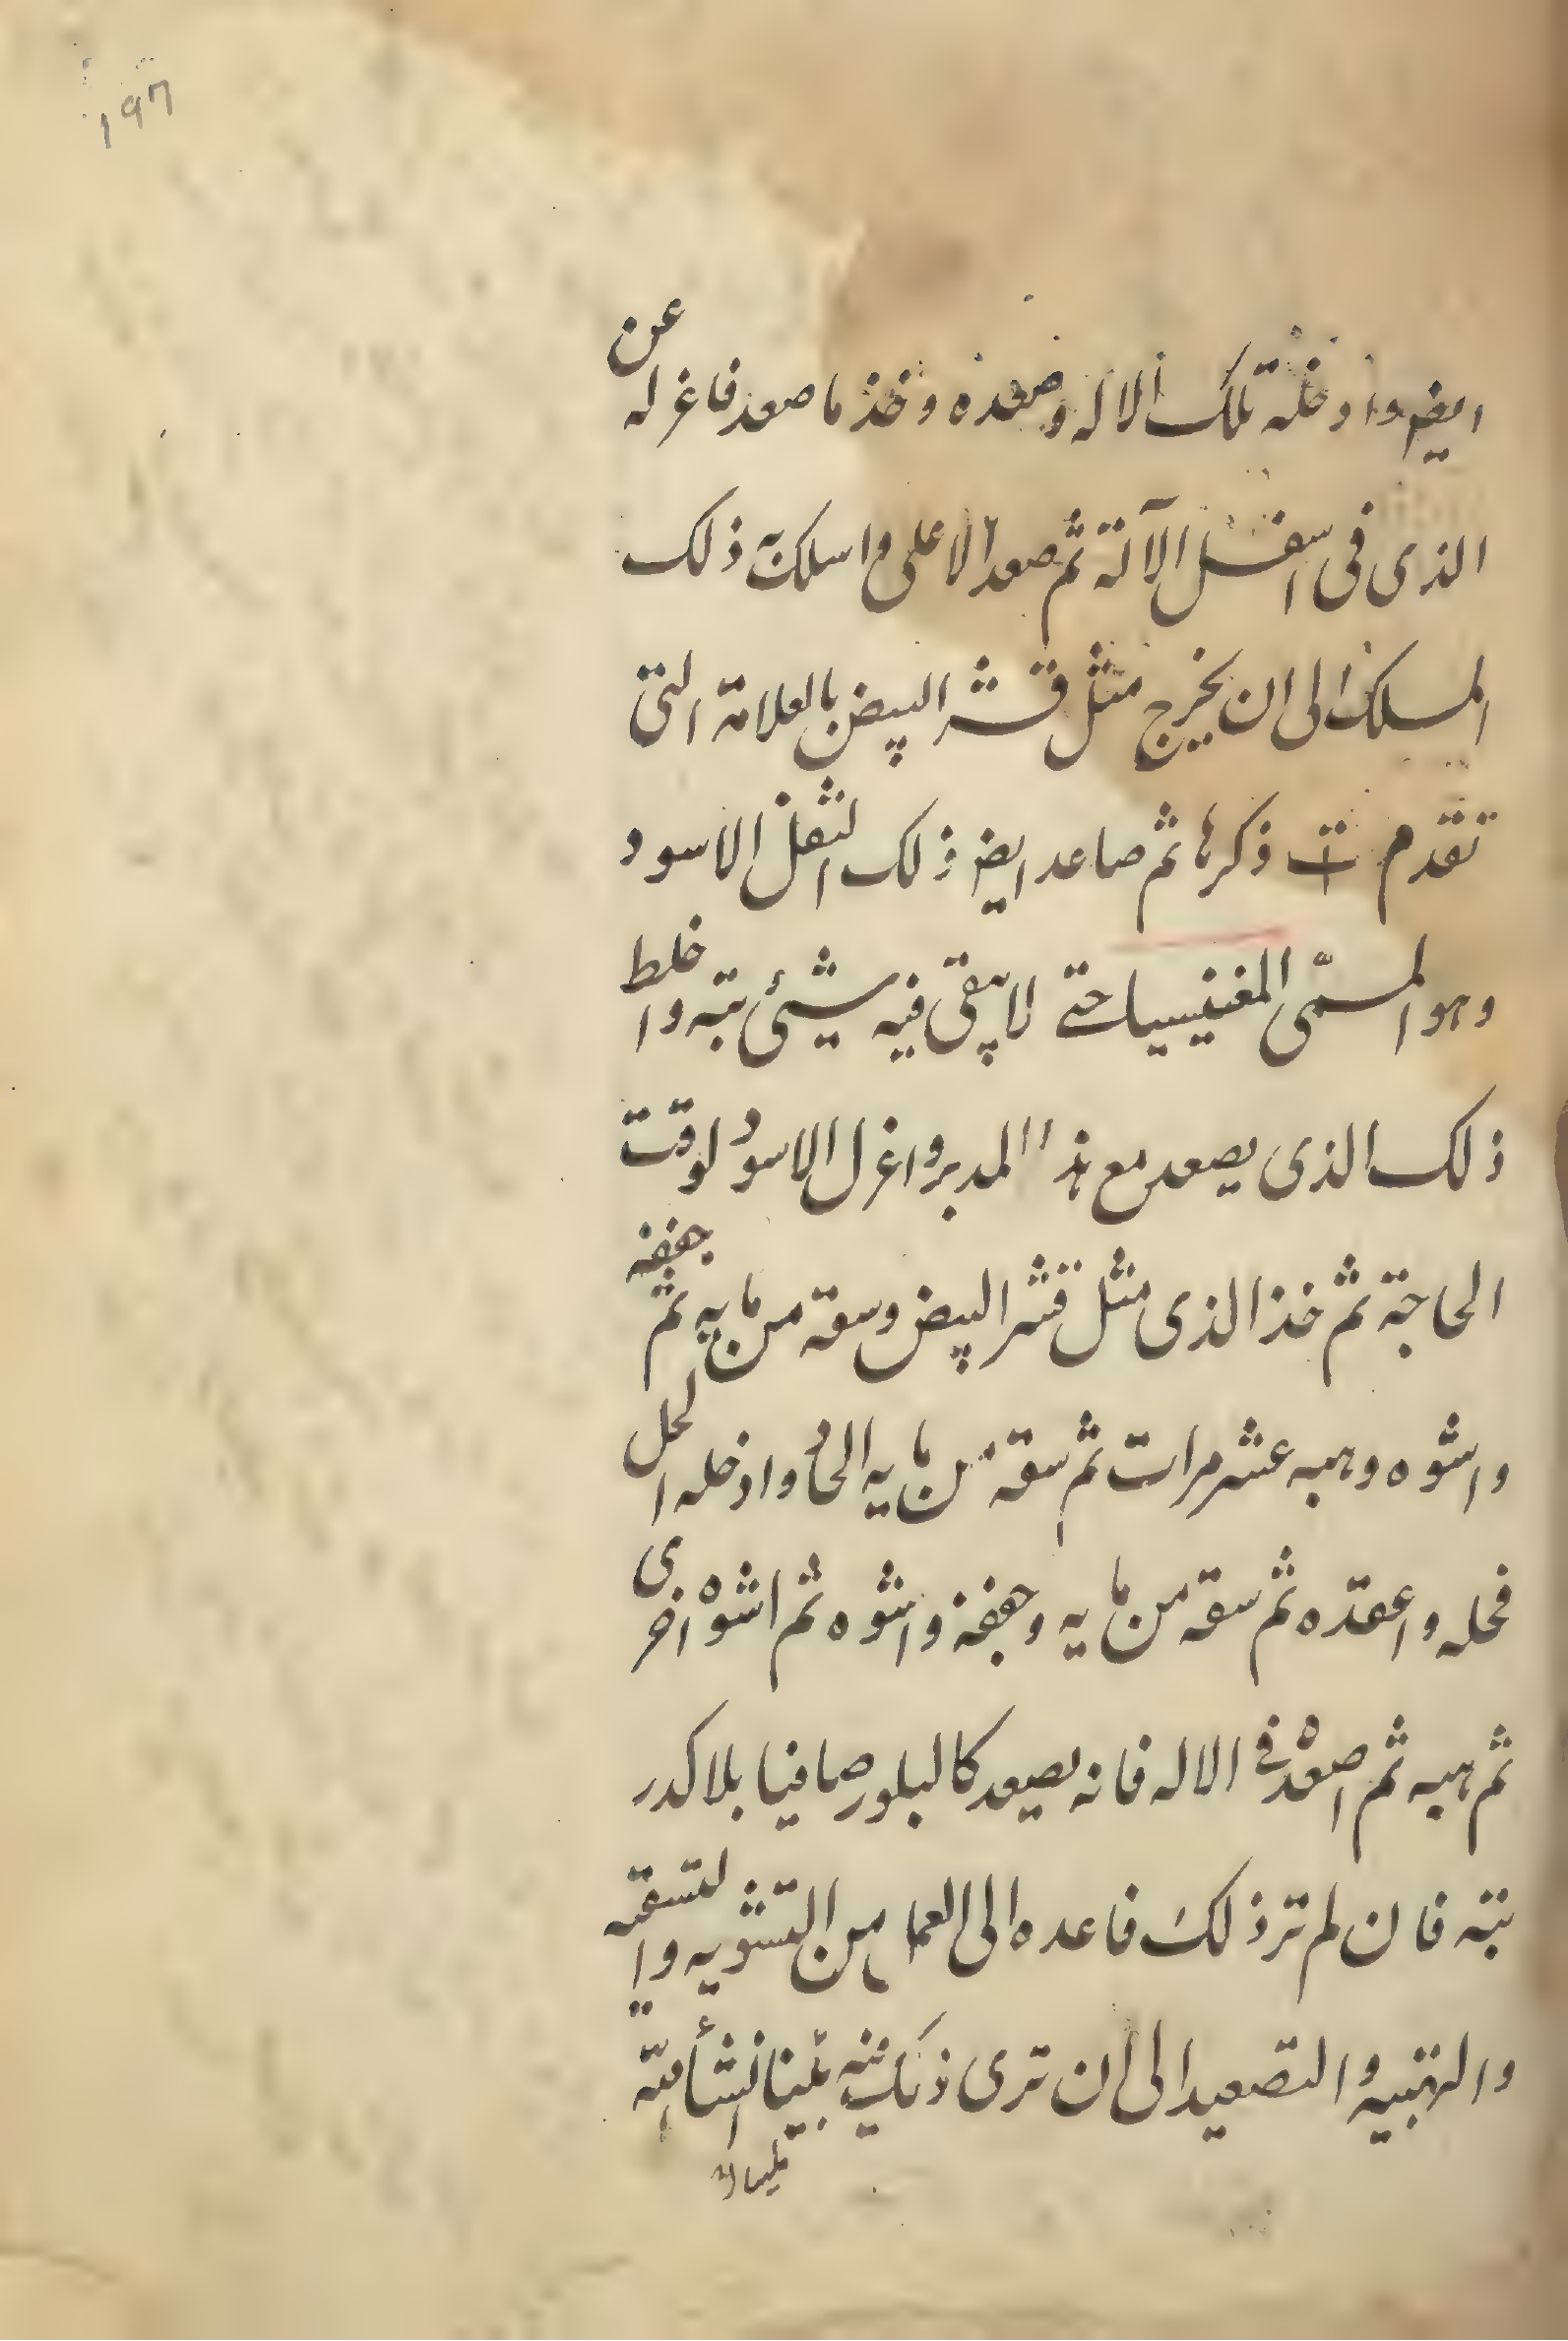 ١٩٦
ايضر وادخله تلك الاله وصعده وخذ ما صعد فاغرله عن
الذى فى اسفل الآلة ثم صعد الاعلى واسلك به ذلك
المسلك الى ان يخرج مثل قشر البيض بالعلامة التى
تقدمت ذكرها ثم صاعد ايضر ذلك الثفل الاسود
وهو المسمّى المغنيسيا حتى لا يبقى فيه شيئ بتة واخلط
ذلك الذى يصعد مع هذا المدبر واغرل الاسود لوقت
الحاجة ثم خذ الذى مثل قشر البيض وسقه من مايه ثم جففه
واشوه وهبه عشر مرات ثم سقه من مايه الحاد وادخله الحل
فحله واعقده ثم سقه من مايه وجففه واشوه ثم اشوه اخرى
ثم هبه ثم اصعده فى الاله فانه يصعد كالبلور صافيا بلا كدر
بته فان لم تر ذلك فاعده الى العمل من التشويه والتسقيه
والتهبيه والتصعيد الى ان ترى ذلك منه بينا انشأ الله